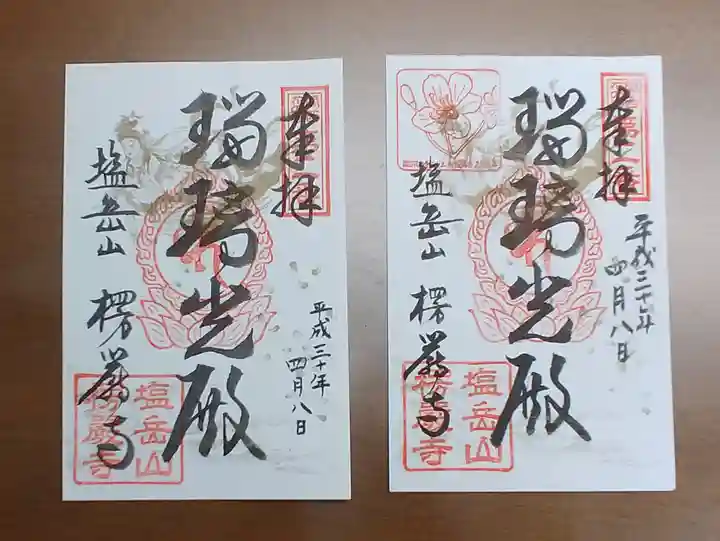 奉拝
瑠璃光殿
塩岳山 楞厳寺
平成三十年
四月八日
塩岳山
楞嚴寺
奉拝
平成三十年
四月八日
瑠璃光殿
塩岳山 楞厳寺
塩岳山
楞嚴寺